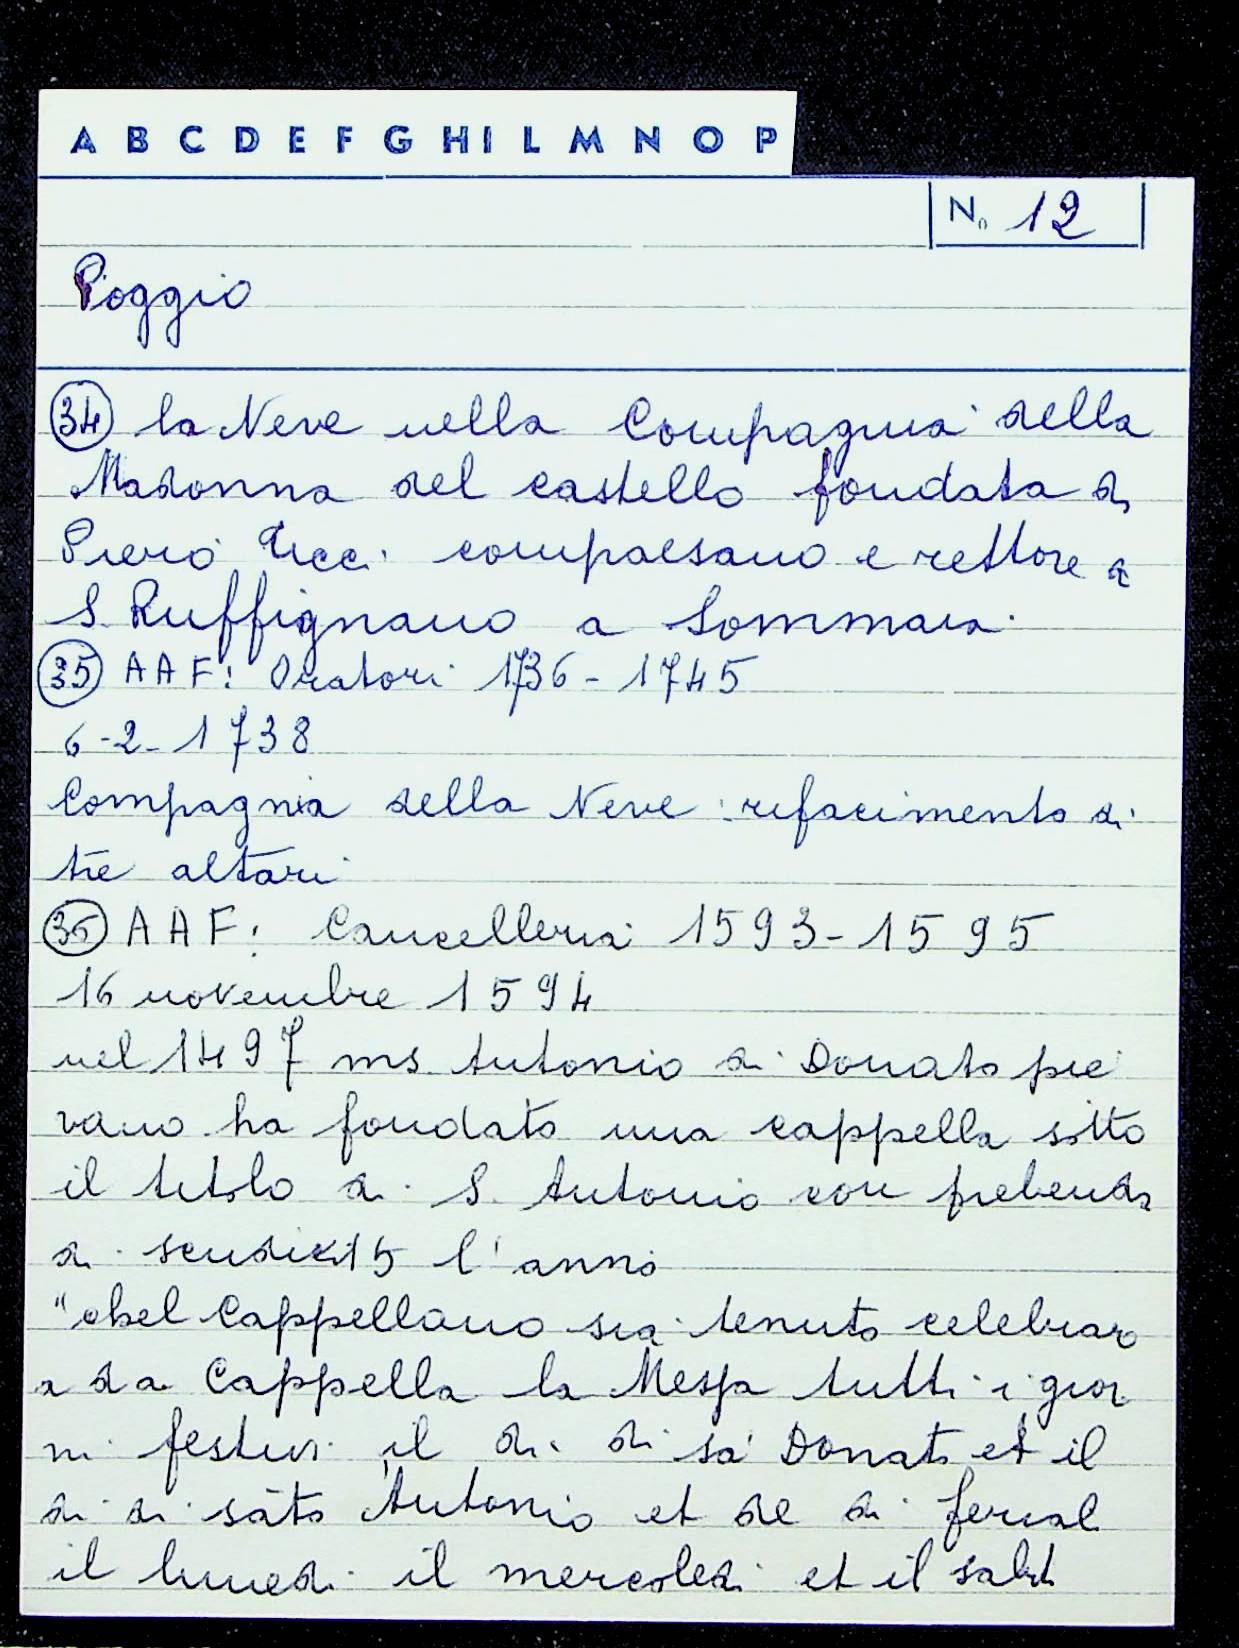 A B C D E F G H I L M N O P
N. 12
Poggio
34 la Neve nella Compagnia della
Madonna del castello fondata da
Piero Ricci compaesano e rettore a
S. Ruffignano a Sommaia
35 AAF: Oratori 1736-1745
6-2-1738
Compagnia della Neve: rifacimento di
tre altari
36 AAF: Cancelleria 1593-1595
16 novembre 1594
nel 1497 ms Antonio di Donato pie
vano ha fondato una cappella sotto
il titolo di S. Antonio con prebenda
di scudi 15 l'anno
"chel Cappellano sia tenuto celebrar
a da Cappella la Messa tutti i gior
ni festivi il di di sā Donato et il
di di sāto Antonio et de di feriali
il lunedi il mercoledi et il sabt